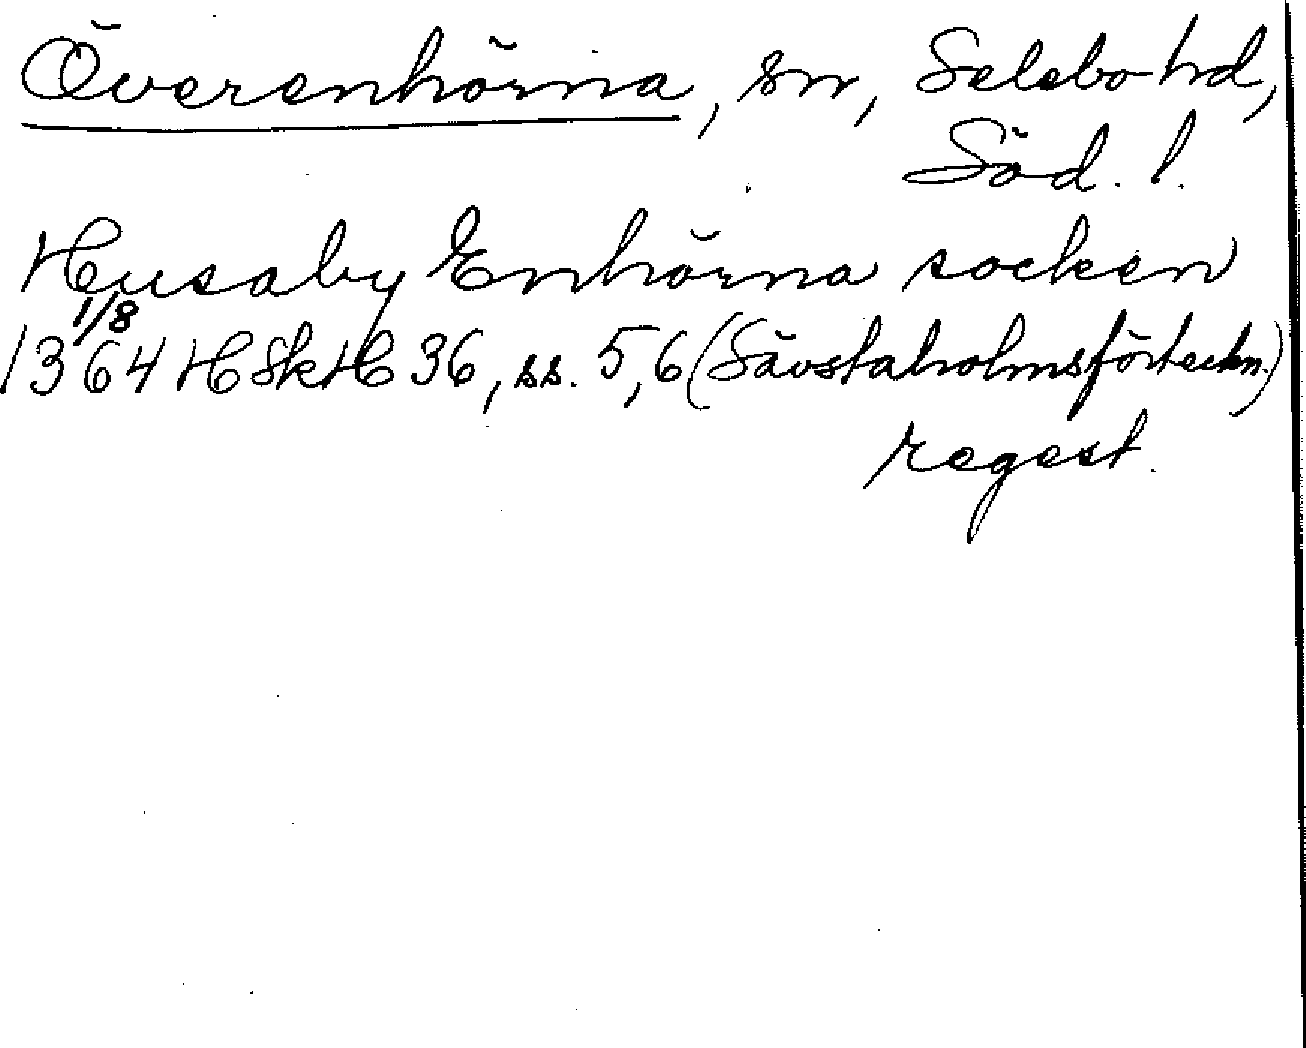 Överenhörna, sn, Selebo hd,
Söd. l.
Husaby Enhörna socken
1/8
1364 HSkH 36, ss. 5,6 (Sävstaholmsförteckn.)
regest.